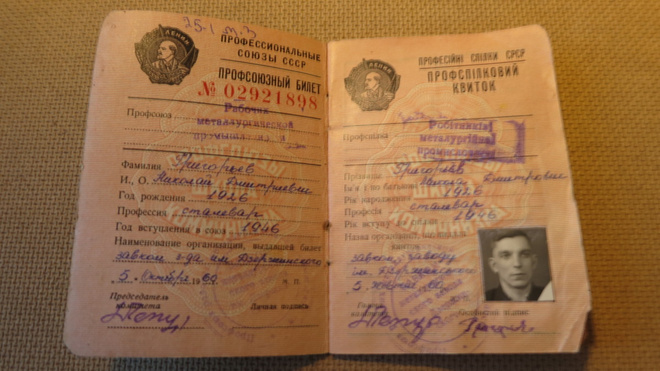 25-I м.3
ЛЕНИН
ПРОФЕССИОНАЛЬНЫЕ
СОЮЗЫ СССР
ПРОФСОЮЗНЫЙ БИЛЕТ
№ 02921898
Профсоюз Рабочих
металлургической
промышлен
Фамилия Григорьев
И., О. Николай Дмитриевич
Год рождения 1926
Профессия сталевар
Год вступления в союз 1946
Наименование организации, выдавшей билет
завком з-да им. Дзержинского
5 Октября 1960 г.
Председатель
комитета
Личная подпись
ЛЕНИН
ПРОФЕСІЙНІ СПІЛКИ СРСР
ПРОФСПІЛКОВИЙ
КВИТОК
Профспілка Робітників
металургійної
Прізвище Григорьєв
Ім'я і по батькові Микола Дмитрович
Рік народження 1926
Професія сталевар
Рік вступу 1946
Назва організації, що
завком заводу
ім. Дзержинського
5 жовтня 60
Голова
комітету
Особистий підпис